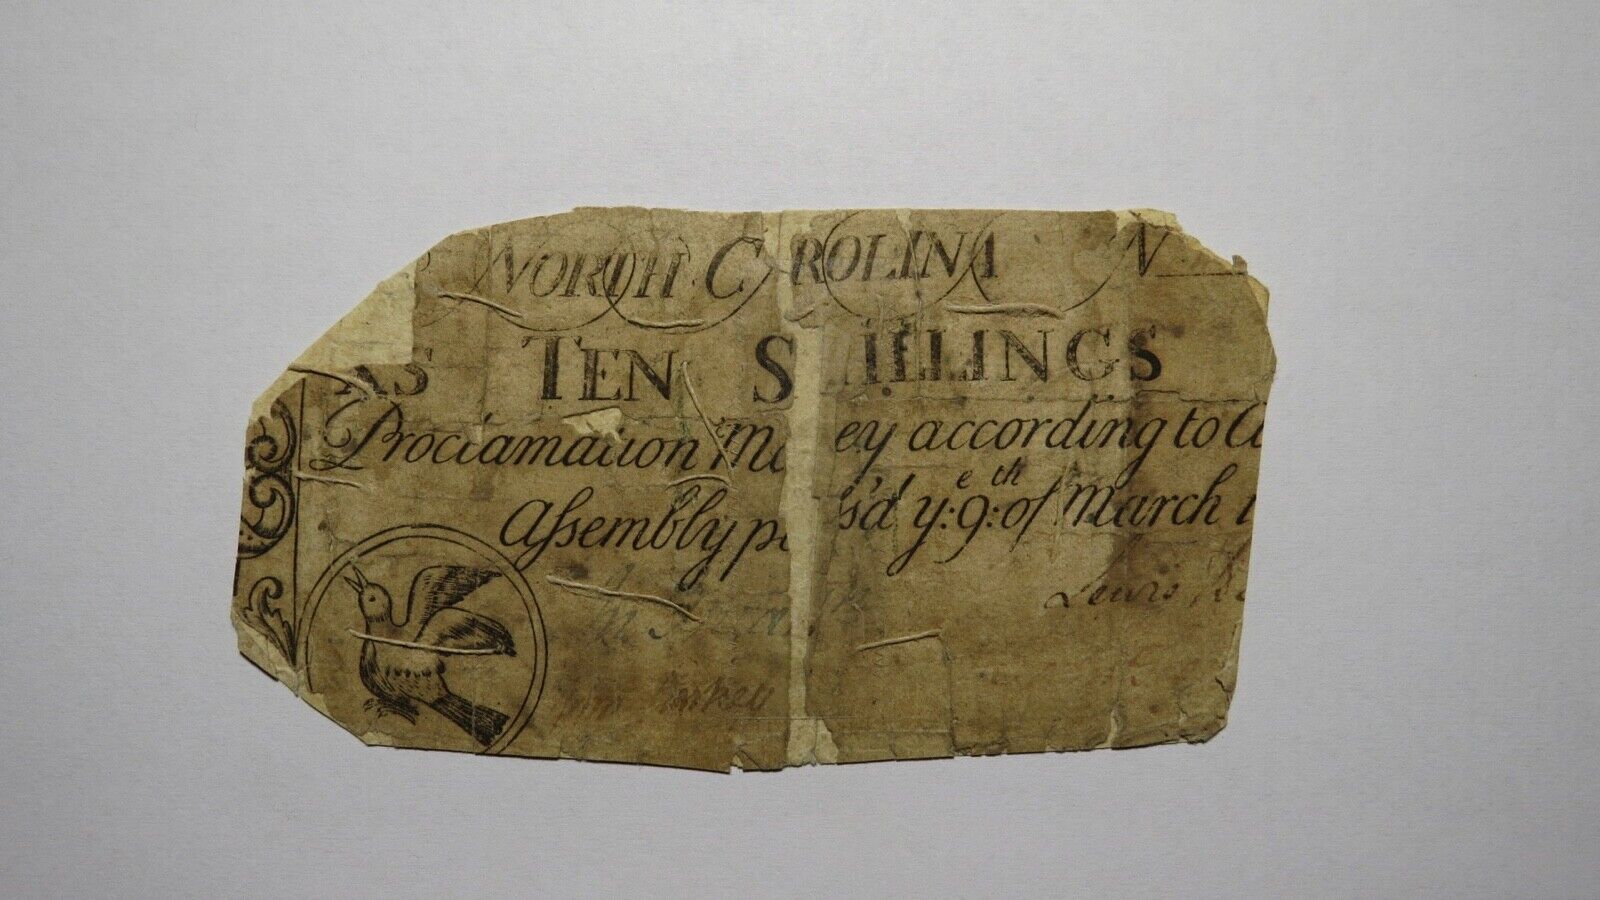 NORTH CAROLINA N
AS TEN SHILLINGS
Proclamation Mo ey according to A
Assembly pa ss'd yᵉ: 9ᵗʰ: of March 1
Lewis